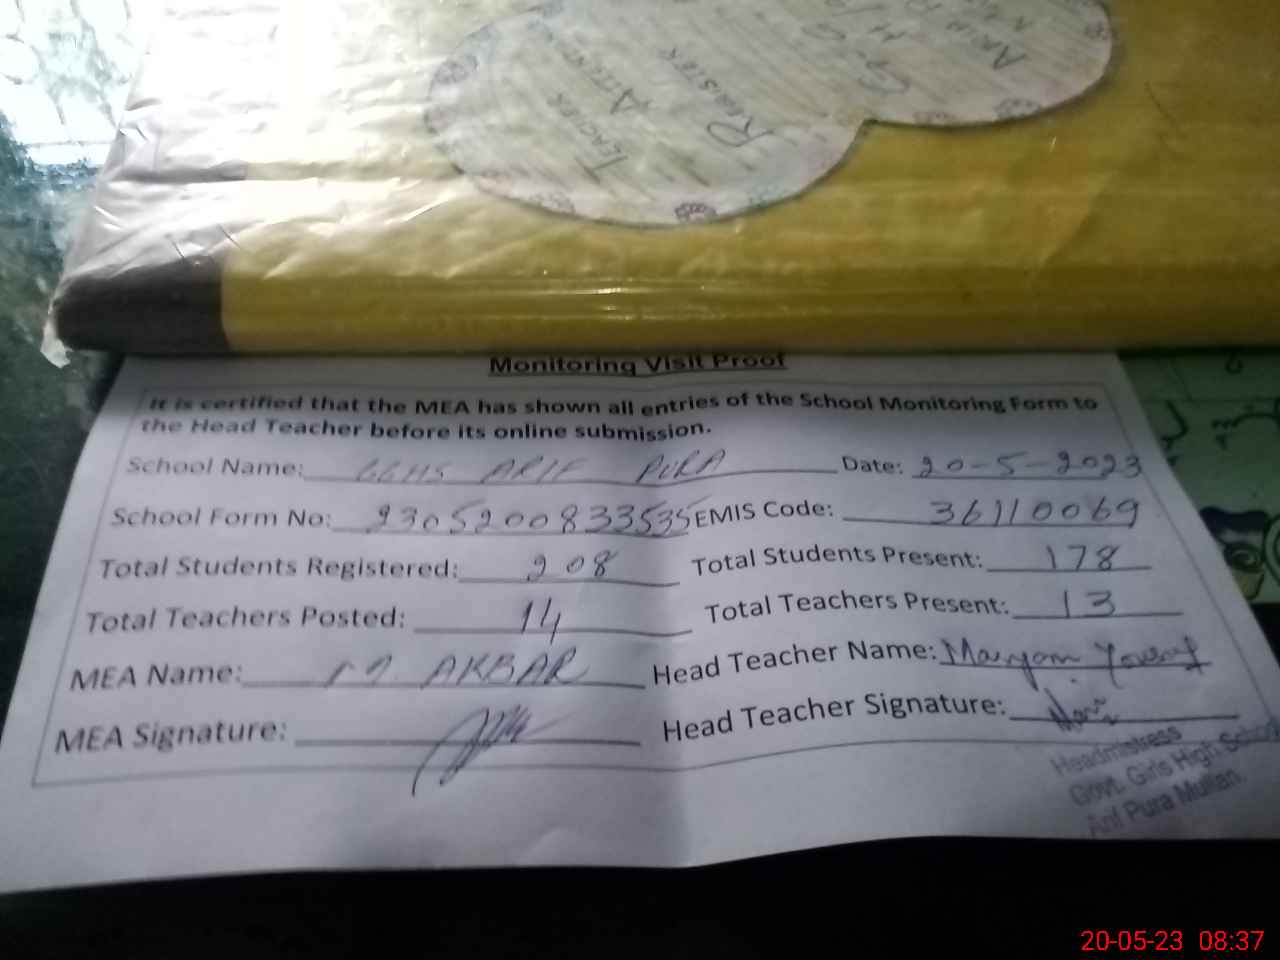 TEACHER
ATTEND
REGISTER
Monitoring Visit Proof
It is certified that the MEA has shown all entries of the School Monitoring Form to
the Head Teacher before its online submission.
School Name: GGHS ARIF PURA Date: 20-5-2023
School Form No: 2305200833535 EMIS Code: 36110069
Total Students Registered: 208 Total Students Present: 178
Total Teachers Posted: 14 Total Teachers Present: 13
MEA Name: M. AKBAR Head Teacher Name: Maryam Yousaf
MEA Signature: Head Teacher Signature:
Headmistress
Govt. Girls High School
Arif Pura Multan
20-05-23 08:37